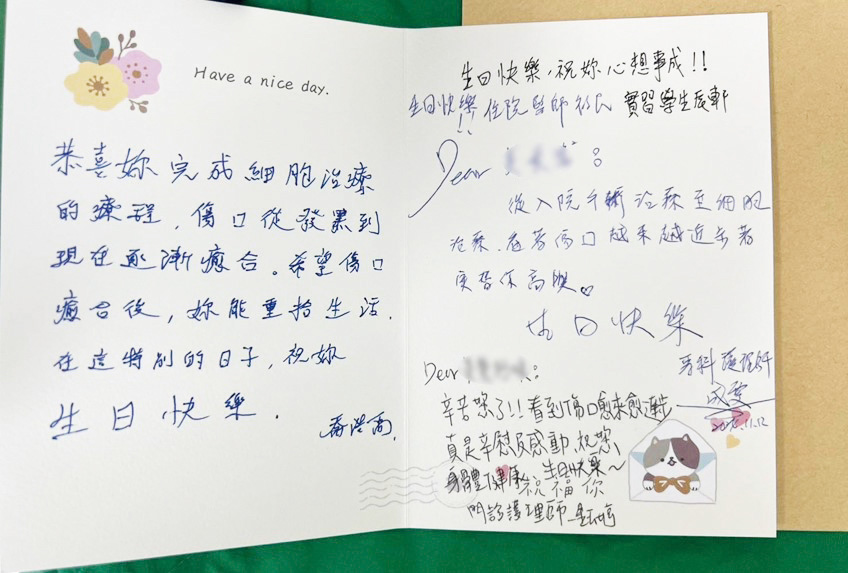 Have a nice day.
恭喜妳完成細胞治療
的療程，傷口從發黑到
現在逐漸癒合。希望傷口
癒合後，妳能重拾生活。
在這特別的日子，祝妳
生日快樂。
生日快樂，祝妳心想事成!!
生日快樂!! 住院醫師 實習學生
Dear :
從入院手術治療至細胞
治療，看著傷口越來越進步著
實替你高興♡
生日快樂
專科護理師
11.12
Dear :
辛苦您了!! 看到傷口愈來愈進步
真是辛慰及感動，祝您
身體健康 生日快樂~
祝福你
門診護理師